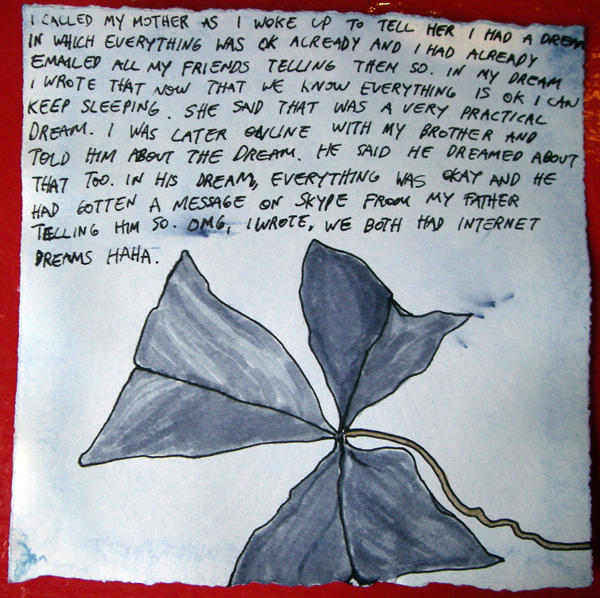 I CALLED MY MOTHER AS I WOKE UP TO TELL HER I HAD A DREAM
IN WHICH EVERYTHING WAS OK ALREADY AND I HAD ALREADY
EMAILED ALL MY FRIENDS TELLING THEM SO. IN MY DREAM
I WROTE THAT NOW THAT WE KNOW EVERYTHING IS OK I CAN
KEEP SLEEPING. SHE SAID THAT WAS A VERY PRACTICAL
DREAM. I WAS LATER ONLINE WITH MY BROTHER AND
TOLD HIM ABOUT THE DREAM. HE SAID HE DREAMED ABOUT
THAT TOO. IN HIS DREAM, EVERYTHING WAS OKAY AND HE
HAD GOTTEN A MESSAGE ON SKYPE FROM MY FATHER
TELLING HIM SO. OMG, I WROTE, WE BOTH HAD INTERNET
DREAMS HAHA.